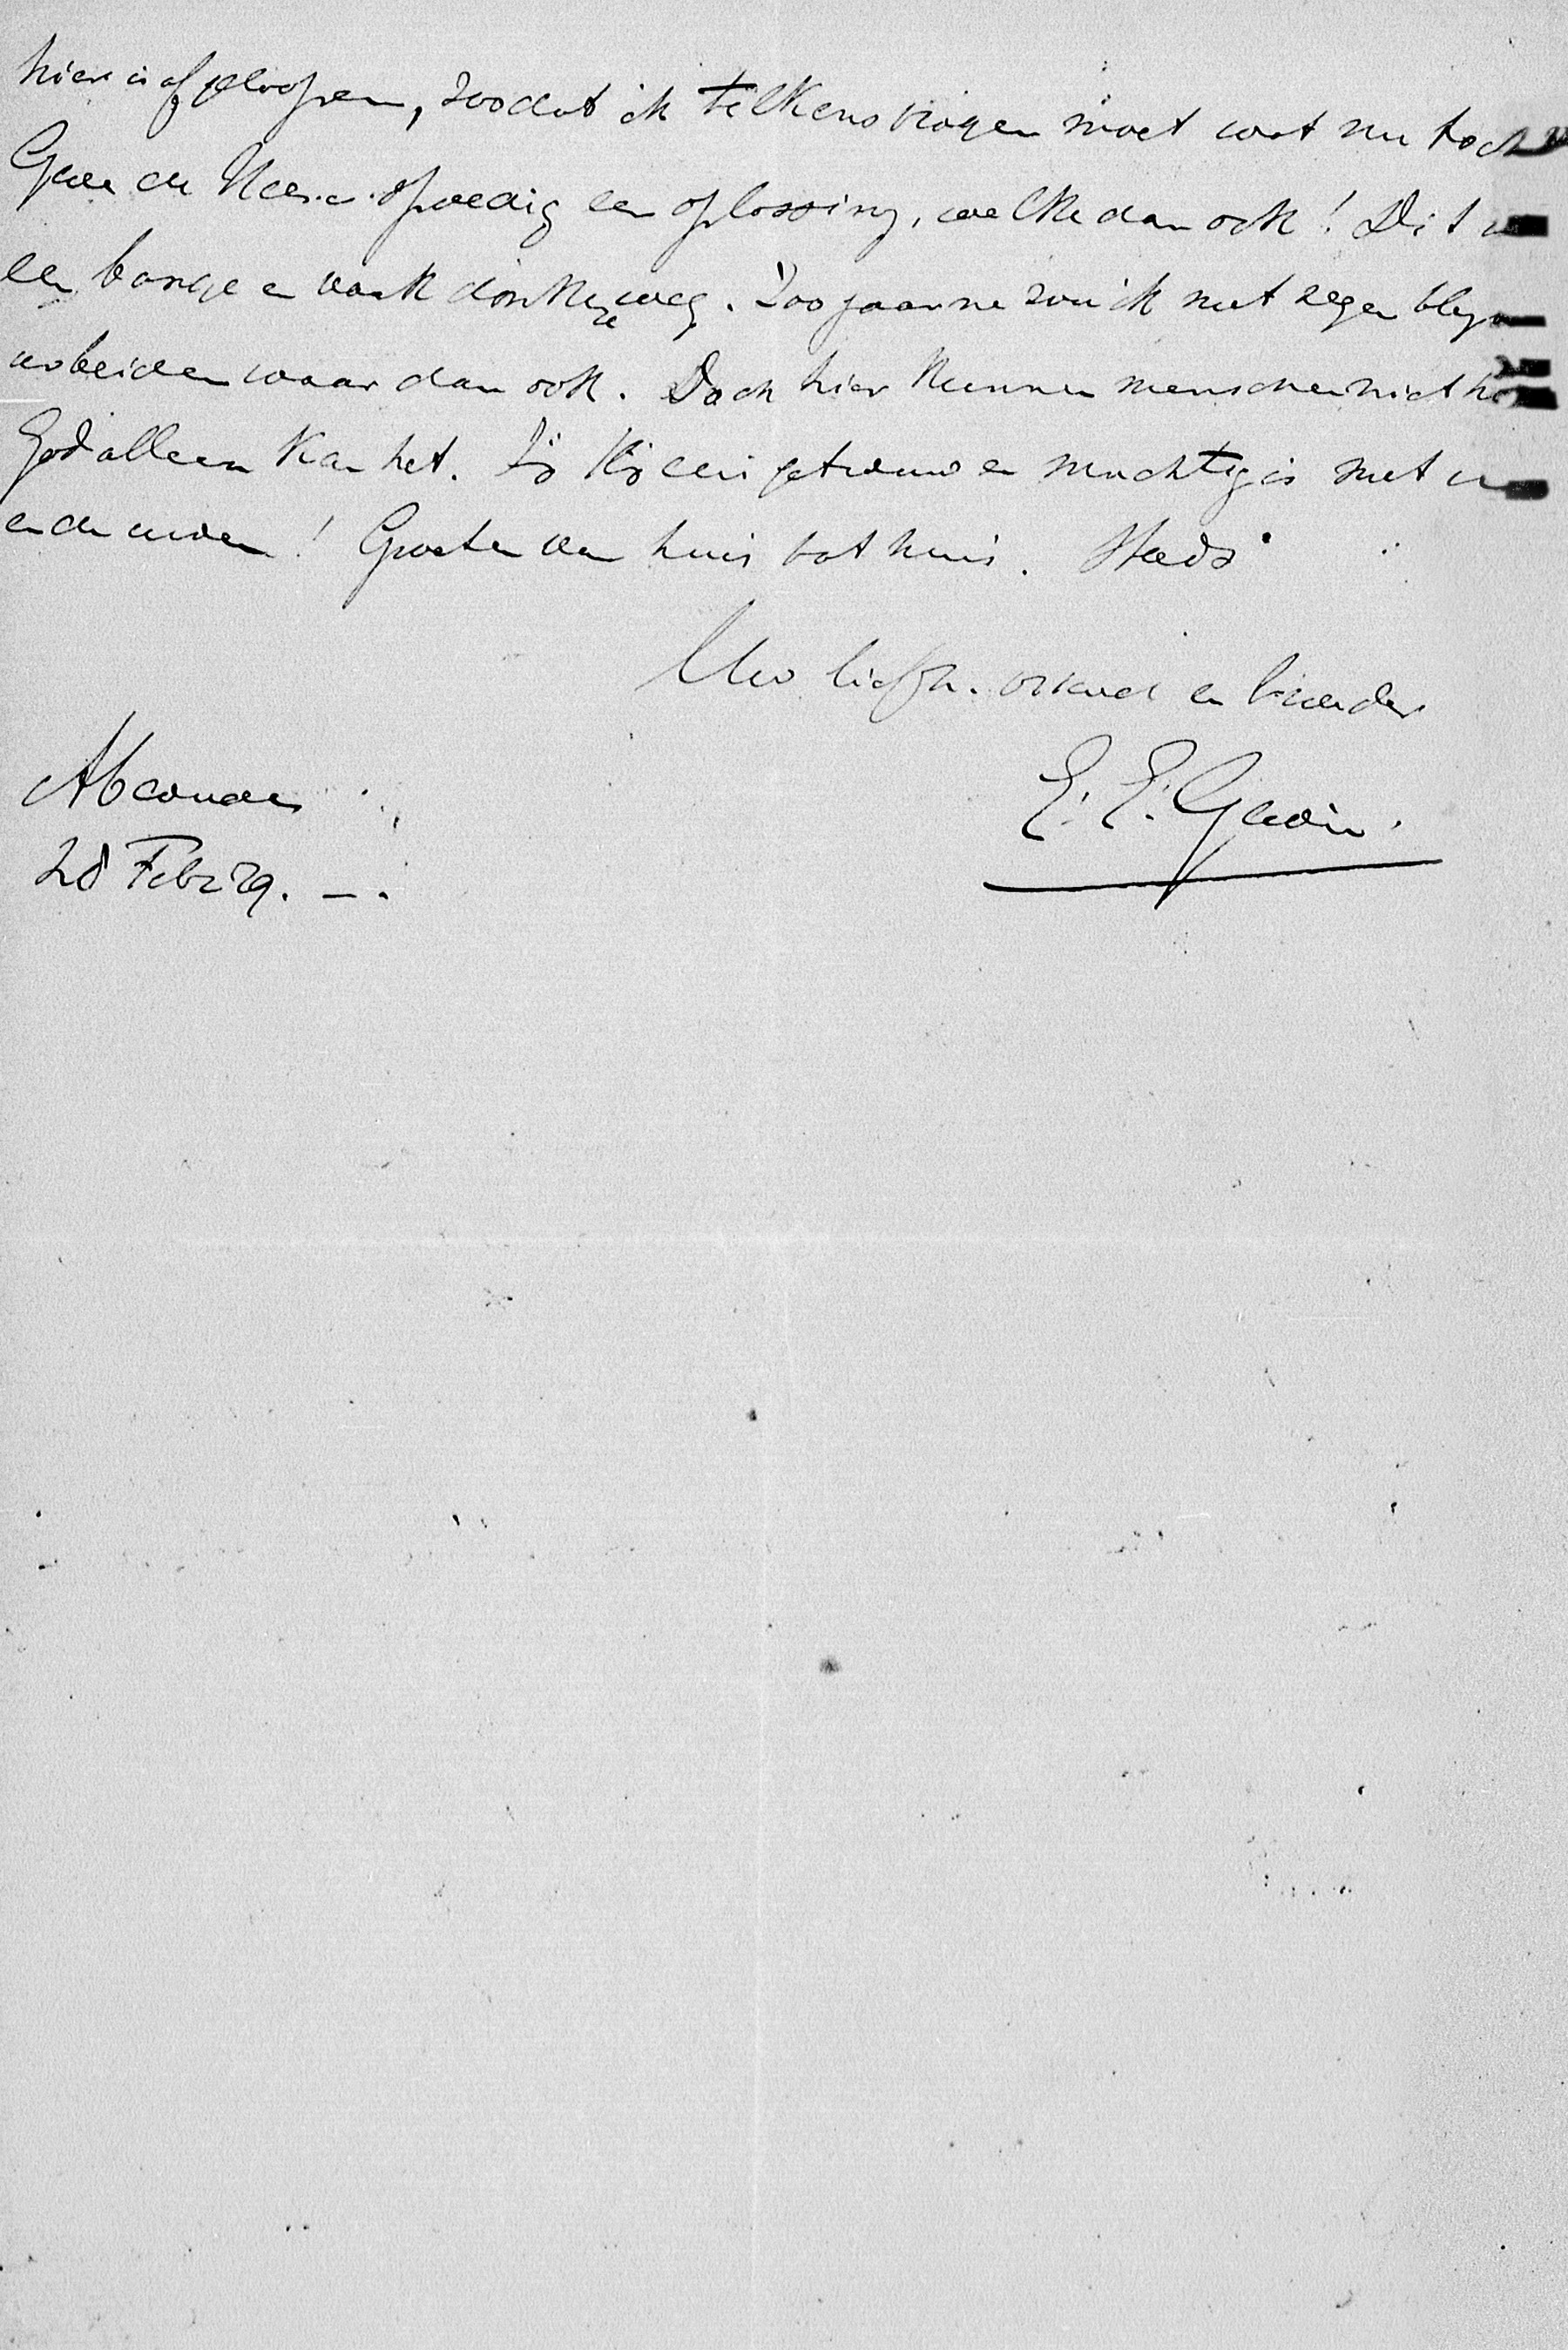 hier is afgeloopen, zoodat ik telkens vragen moet wat nu toch
Geve de Heere spoedig een oplossing, welke dan ook! Dit is
een bange en vaak donkere weg. Zoo gaarne zou ik met zegen blijven
arbeiden waar dan ook. Doch hier kunnen menschen niet
God alleen kan het. Zij Hij die getrouw en machtig is met u
en de uwen! Groeten van huis tot huis. Steeds
Uw liefh. vriend en broeder
E. E. Gewin.
Abcoude
28 Febr 29. —.